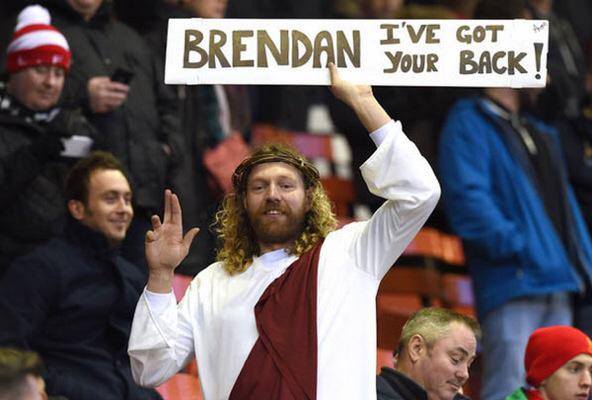 BRENDAN I'VE GOT
YOUR BACK!